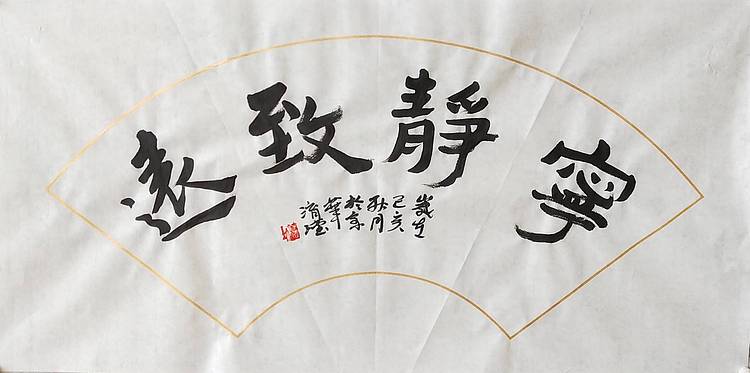 寧靜致遠
歲在
己亥
秋月
於京
華